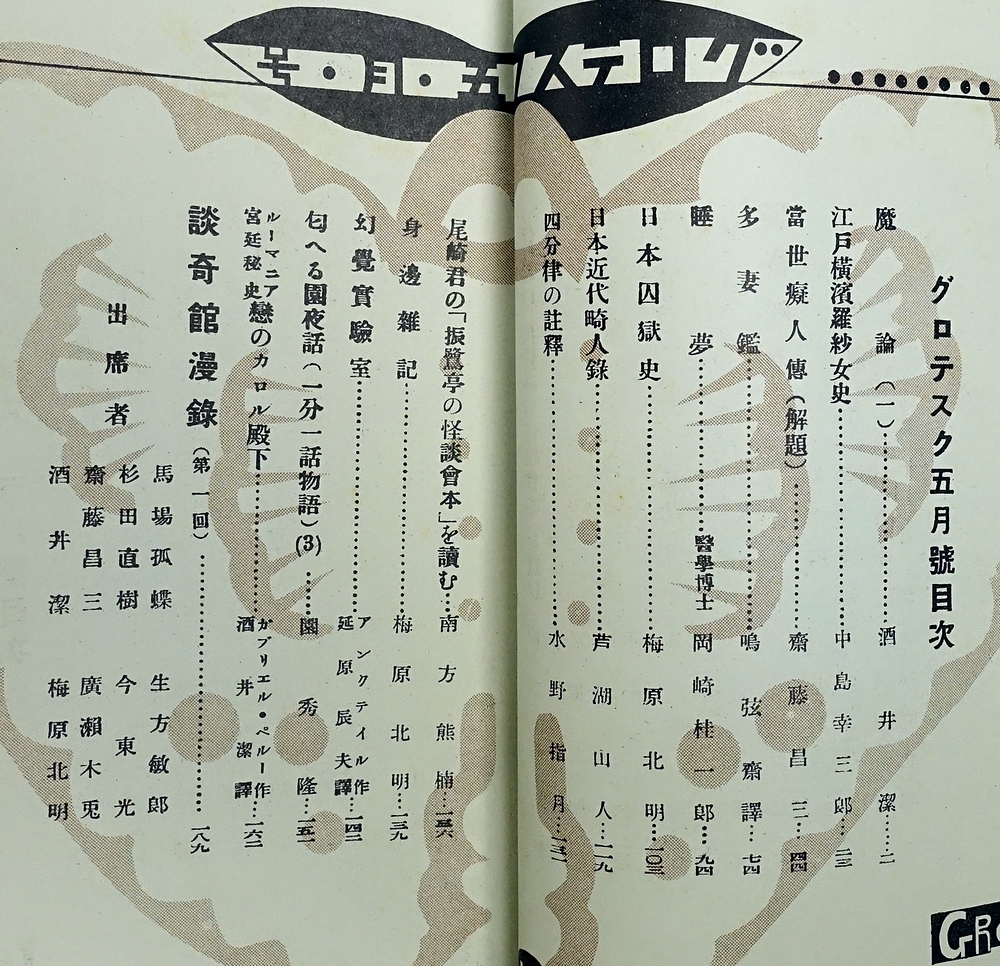 グロテスク五月号
グロテスク五月號目次
魔論(一)……酒井潔……二
江戸橫濱羅紗女史……中島幸三郎……二三
當世癡人傳(解題)……齋藤昌三……四四
多妻鑑……鳴弦齋譯……七四
睡夢……醫學博士 岡崎桂一郎……九四
日本囚獄史……梅原北明……一〇三
日本近代畸人錄……芦湖山人……一一九
四分律の註釋……水野指月……一三二
尾崎君の「振鷺亭の怪談會本」を讀む……南方熊楠……一三六
身邊雜記……梅原北明……一三九
幻覺實驗室……アンクテイル作 延原辰夫譯……一四二
匂へる園夜話(一分一話物語)(3)……園秀隆……
ルーマニア宮廷秘史 戀のカロル殿下……ガブリエル・ペルー作 酒井潔譯……一六二
談奇館漫錄(第一回)……一八九
出席者
馬場孤蝶 生方敏郎
杉田直樹 今東光
齋藤昌三 廣瀨木兎
酒井潔 梅原北明